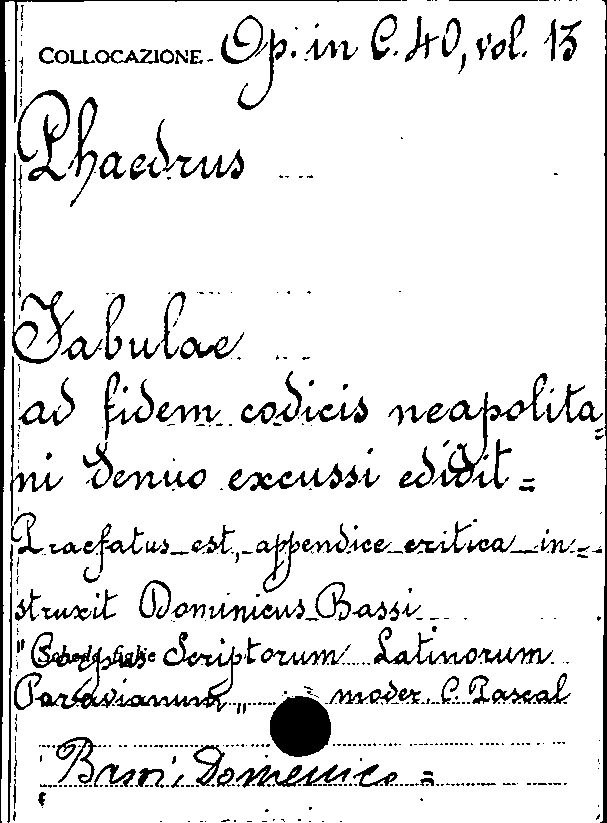 COLLOCAZIONE Op. in C. 40, vol. 13
Phaedrus
Fabulae
ad fidem codicis neapolita=
ni denuo excussi edidit =
Praefatus est, appendice critica in=
struxit Dominicus Bassi
"Corpus Scriptorum Latinorum
Paravianum„ moder. C. Pascal
Bassi, Domenico =